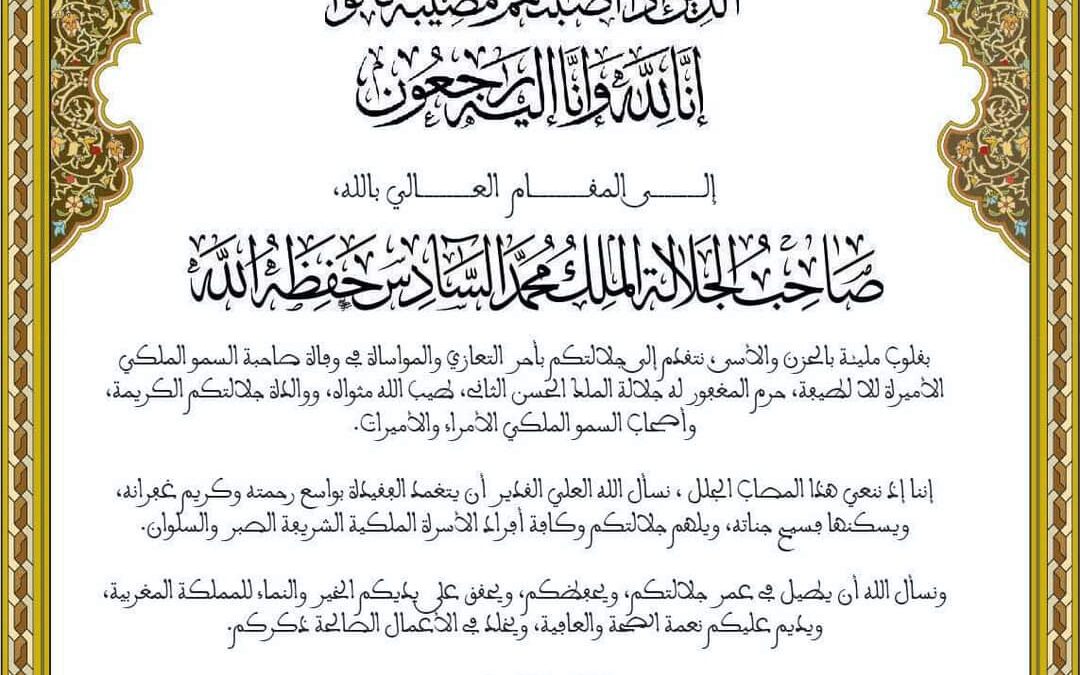 الذين إذا أصابتهم مصيبة قالوا
إنا لله وإنا إليه راجعون
إلــــى المقــــام العــــالي بالله،
صَاحِبُ الجَلالَة المَلِكُ مُحمَّد السَّادِس حَفِظَهُ اللَّه
بقلوب مليئة بالحزن والأسى، نتقدم إلى جلالتكم بأحر التعازي والمواساة في وفاة صاحبة السمو الملكي
الأميرة للا لطيفة، حرم المغفور له جلالة الملك الحسن الثاني، طيب الله مثواه، ووالدة جلالتكم الكريمة،
وأصحاب السمو الملكي الأمراء والأميرات.
إننا إذ ننعي هذا المصاب الجلل، نسأل الله العلي القدير أن يتغمد الفقيدة بواسع رحمته وكريم غفرانه،
ويسكنها فسيح جناته، ويلهم جلالتكم وكافة أفراد الأسرة الملكية الشريفة الصبر والسلوان.
ونسأل الله أن يطيل في عمر جلالتكم، ويحفظكم، ويحقق على يديكم الخير والنماء للمملكة المغربية،
ويديم عليكم نعمة الصحة والعافية، ويخلد في الأعمال الصالحة ذكركم.